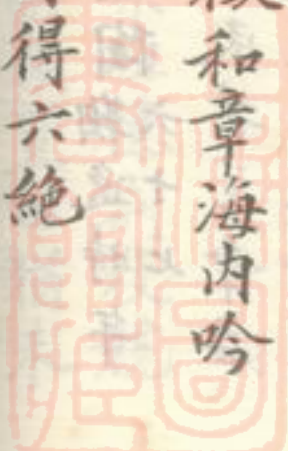 和章海内吟
得六絶